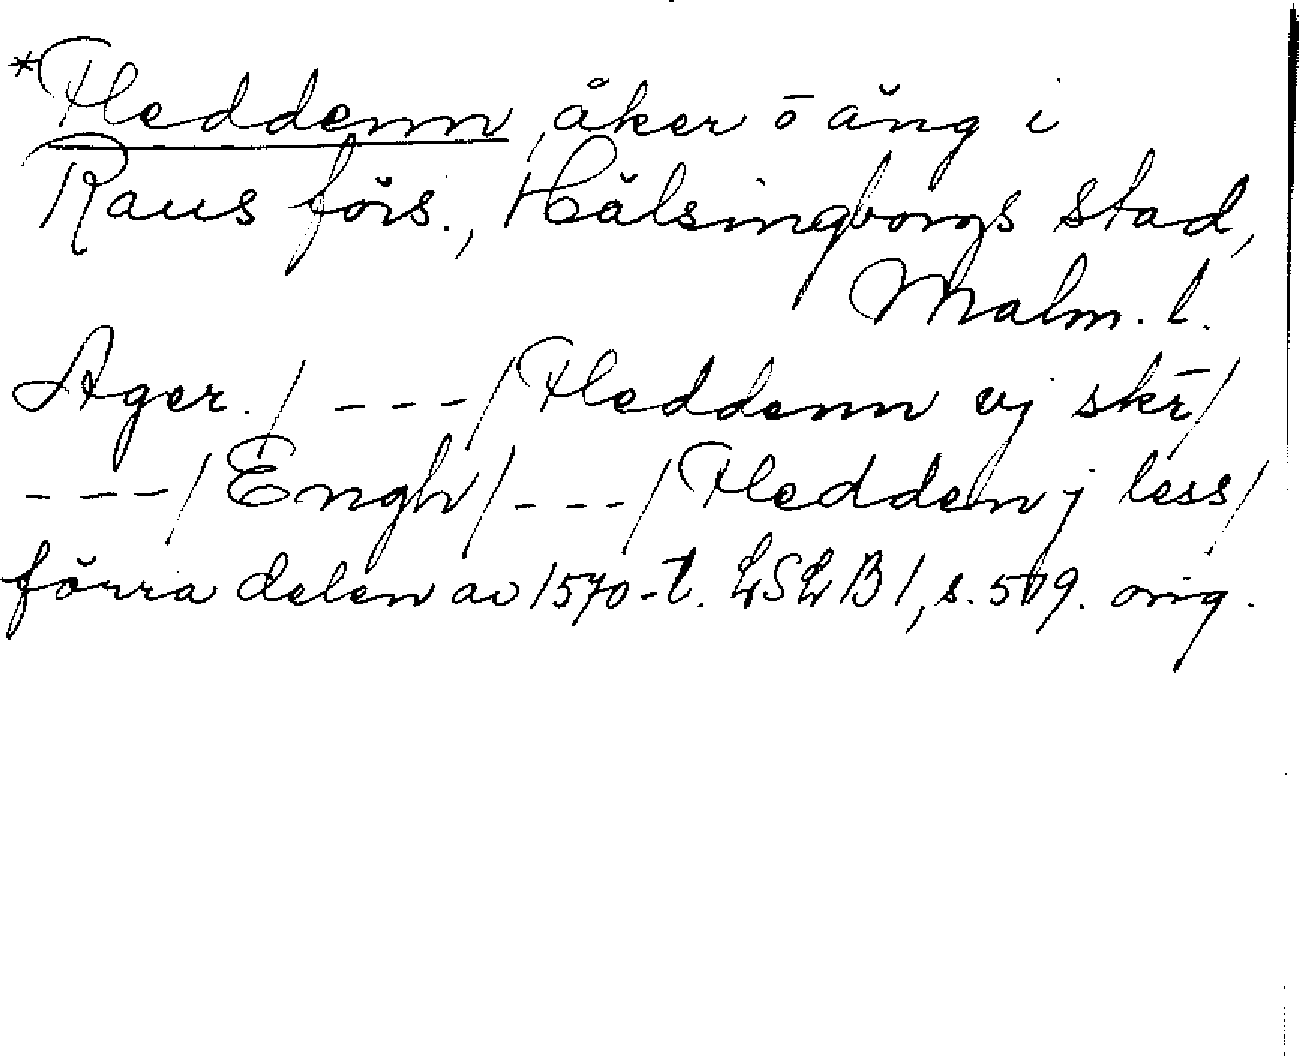 *Fleddenn, åker o äng i
Raus förs., Hälsingborgs stad,
Malm. l.
Ager. / --- / Fleddenn vj skr /
--- / Engh / --- / Fledden j less /
förra delen av 1570-t. LSLB 1, s. 519. orig.